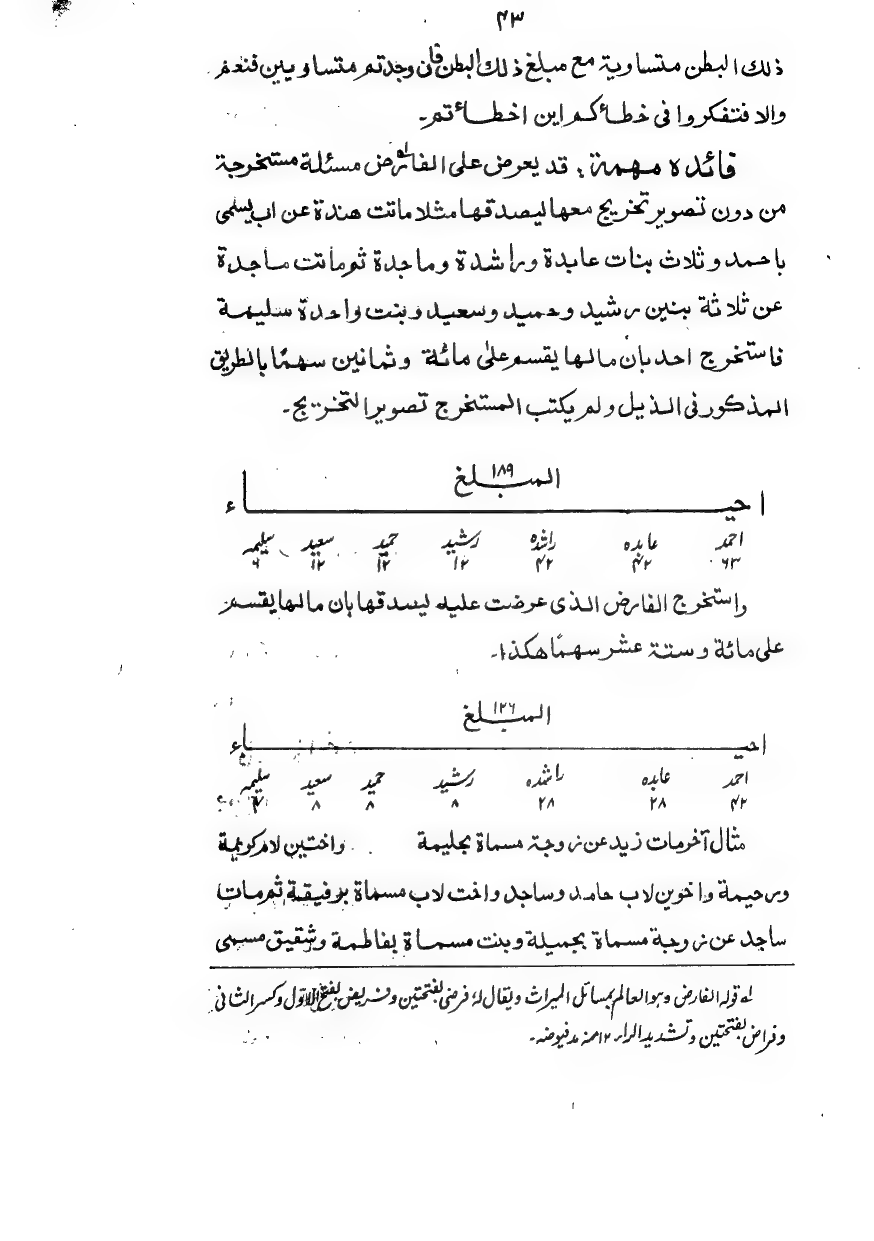 ۴۳
ذلك البطن متساوية مع مبلغ ذلك البطن فان وجدتم متساويين فنعم
والا فتفكروا فى خطائكم اين اخطائتم۔
فائدة مهمة؛ قد يعرض على الفارض مسئلة مستخرجة
من دون تصوير تخريج معها ليصدقها مثلا ماتت هندة عن اب يسمى
باحمد وثلاث بنات عابدة وراشدة وماجدة ثم ماتت ماجدة
عن ثلاثة بنين رشيد وحميد وسعيد وبنت واحدة سليمة
فاستخرج احد بأن مالها يقسم على مائة وثمانين سهمًا بالطريق
المذكور فى الذيل ولم يكتب المستخرج تصوير التخريج۔
المبلغ ۱۸۹
احياء
احمد عابده راشده رشيد حميد سعيد سليمه
۶۳ ۴۲ ۴۲ ۱۲ ۱۲ ۱۲ ۶
واستخرج الفارض الذى عرضت عليه ليسدقها بان مالها يقسم
على مائة وستة عشر سهمًا هكذا۔
المبلغ ۱۲۶
احياء
احمد عابده راشده رشيد حميد سعيد سليمه
۴۲ ۲۸ ۲۸ ۸ ۸ ۸ ۴
مثال آخر مات زيد عن زوجة مسماة بجليمة واختين لام كريمة
ورحيمة واخوين لاب حامد وساجد واخت لاب مسماة برفيقة ثم مات
ساجد عن زوجة مسماة بجميلة وبنت مسماة بفاطمة وشقيق مسمى
له قوله الفارض وهو العالم بمسائل الميراث ويقال له فرضى بفتحتين وفريض بفتح الاول وكسر الثانى
وفراض بفتحتين وتشديد الراء ۱۲ منه مد فيوضه۔